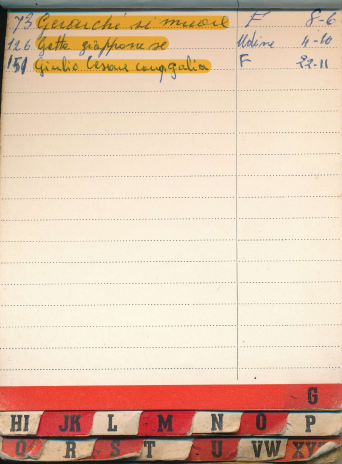 73 Gerarchi si muore F 8-6
126 Gatta giapponese Udine 4-10
151 Giulio Cesare conquista F 22-11
G
HI JK L M N O P
Q R S T U VW XY